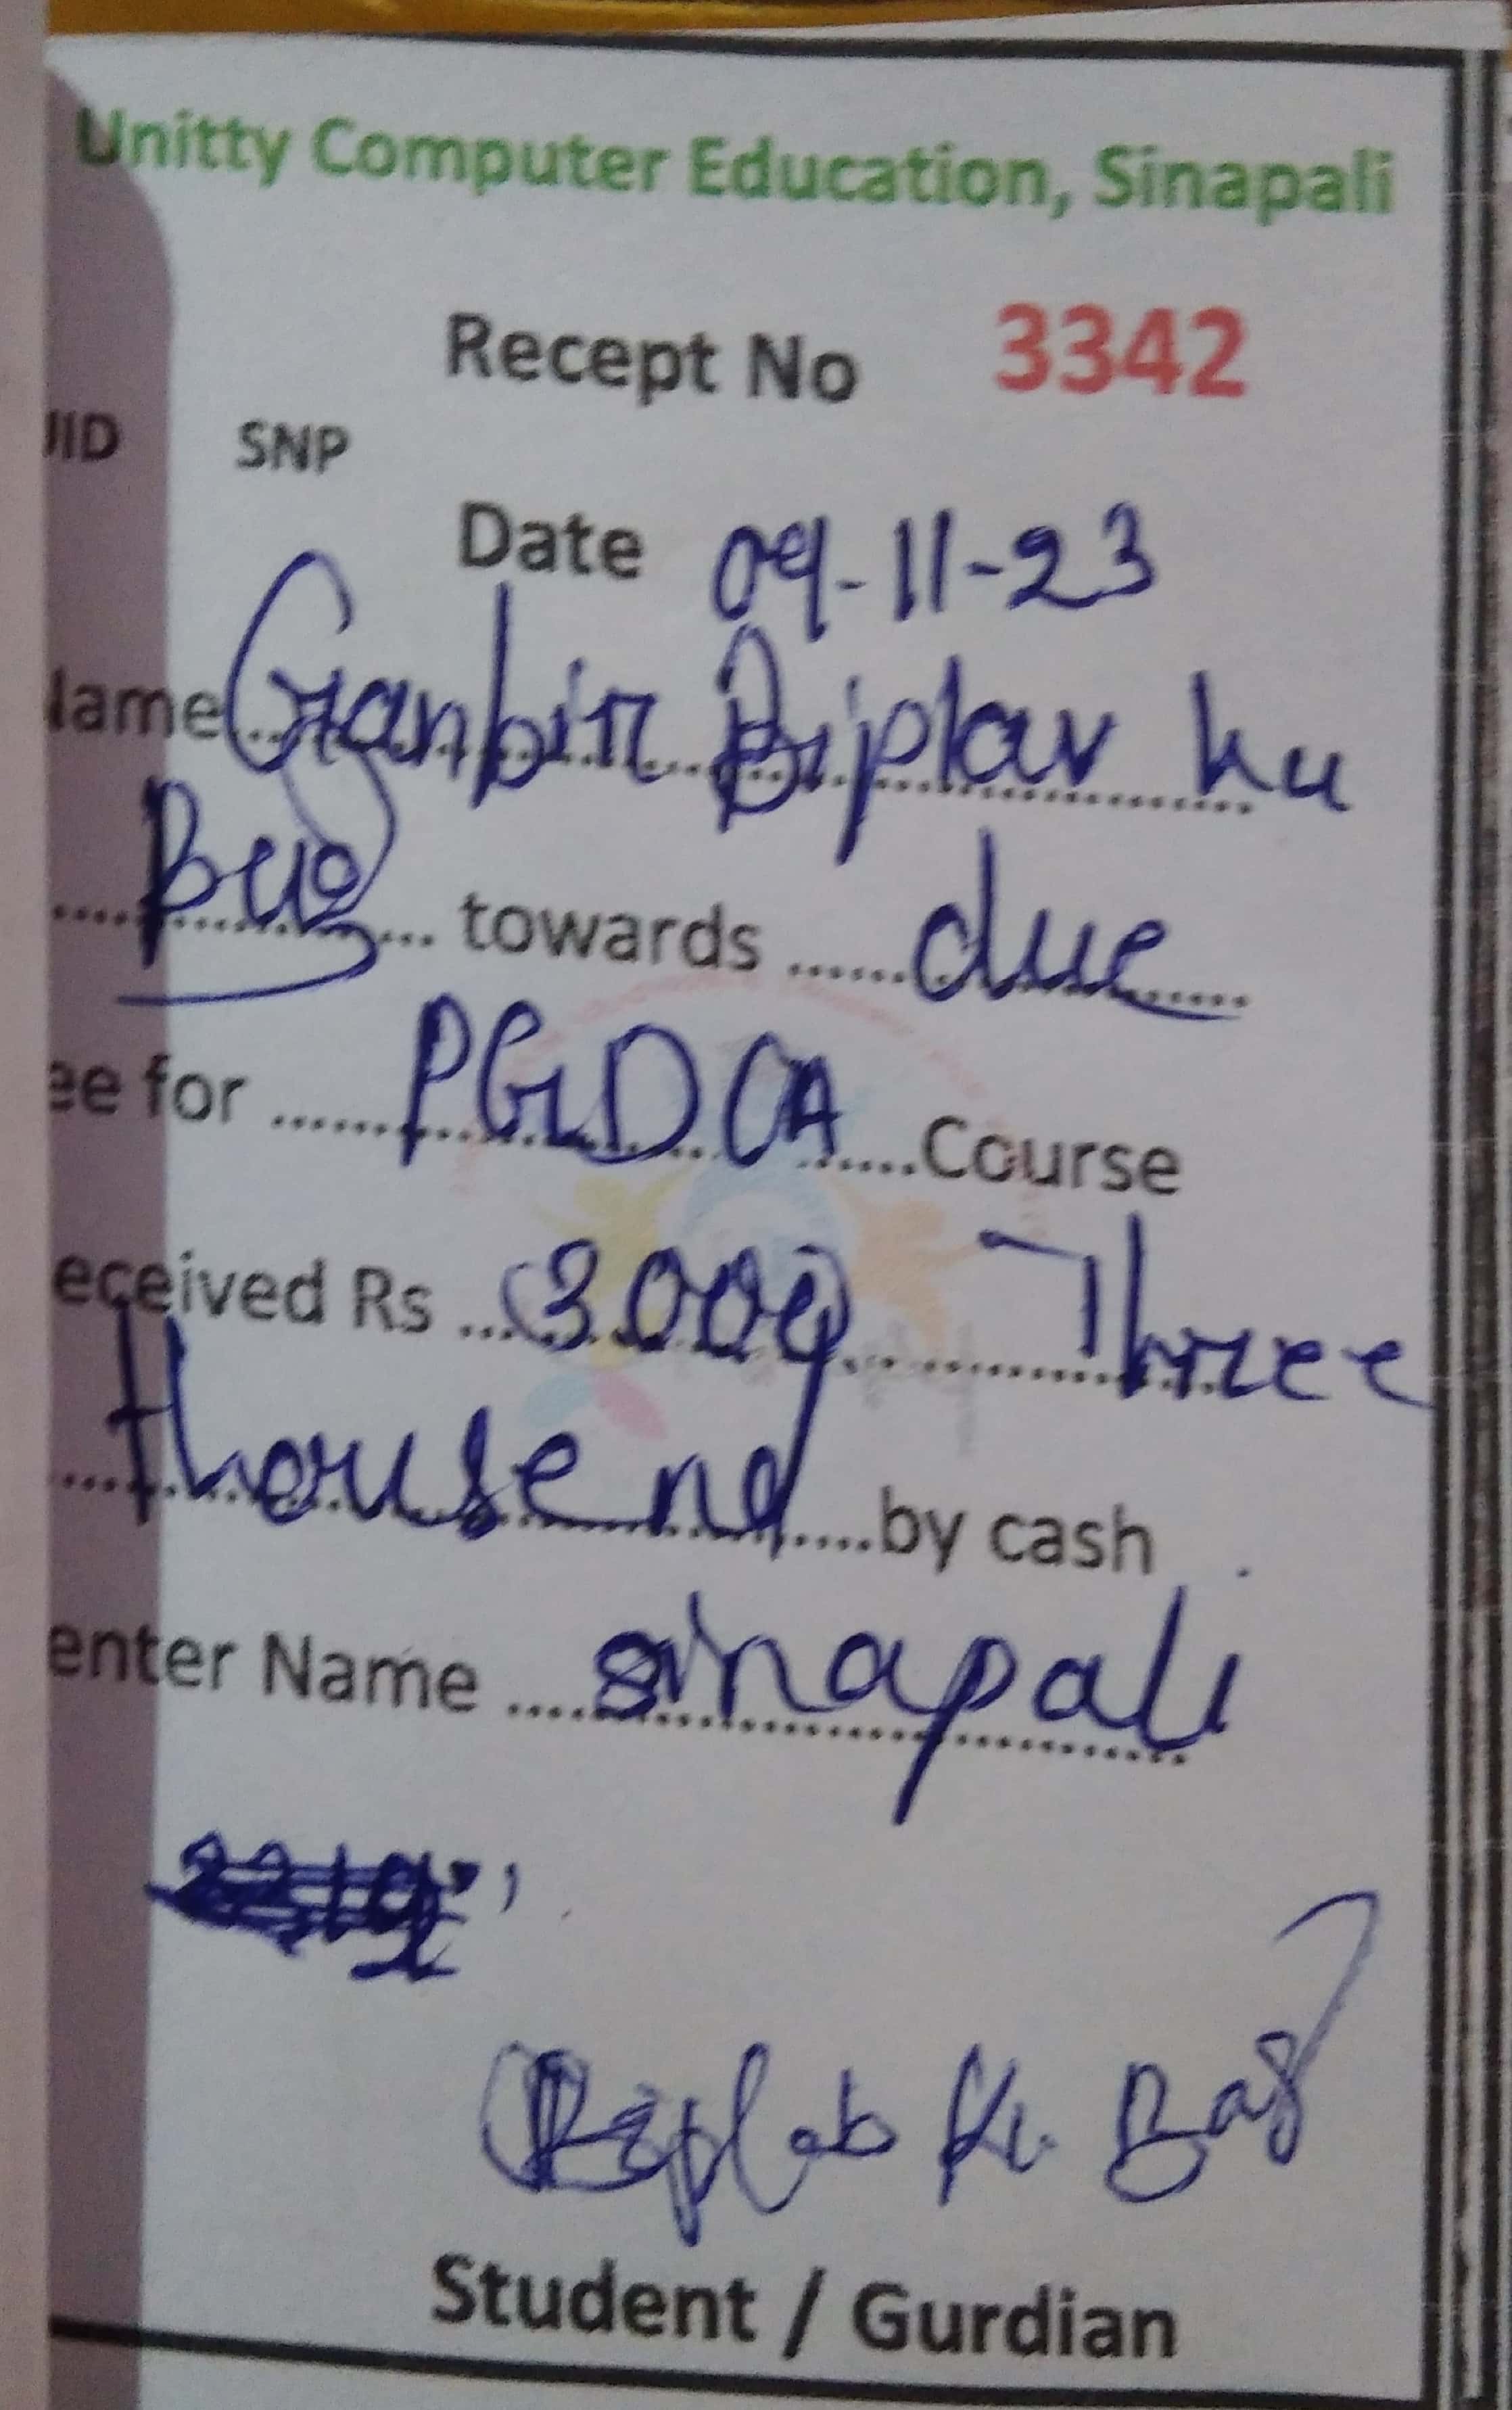 Unitty Computer Education, Sinapali
Recept No 3342
UID SNP
Date 09-11-23
Name Ganbir Biplav ku
Bag towards due
ee for PGDCA Course
eceived Rs 3000 Three
thousend by cash
enter Name sinapali
Biplab Ku. Bag
Student / Gurdian